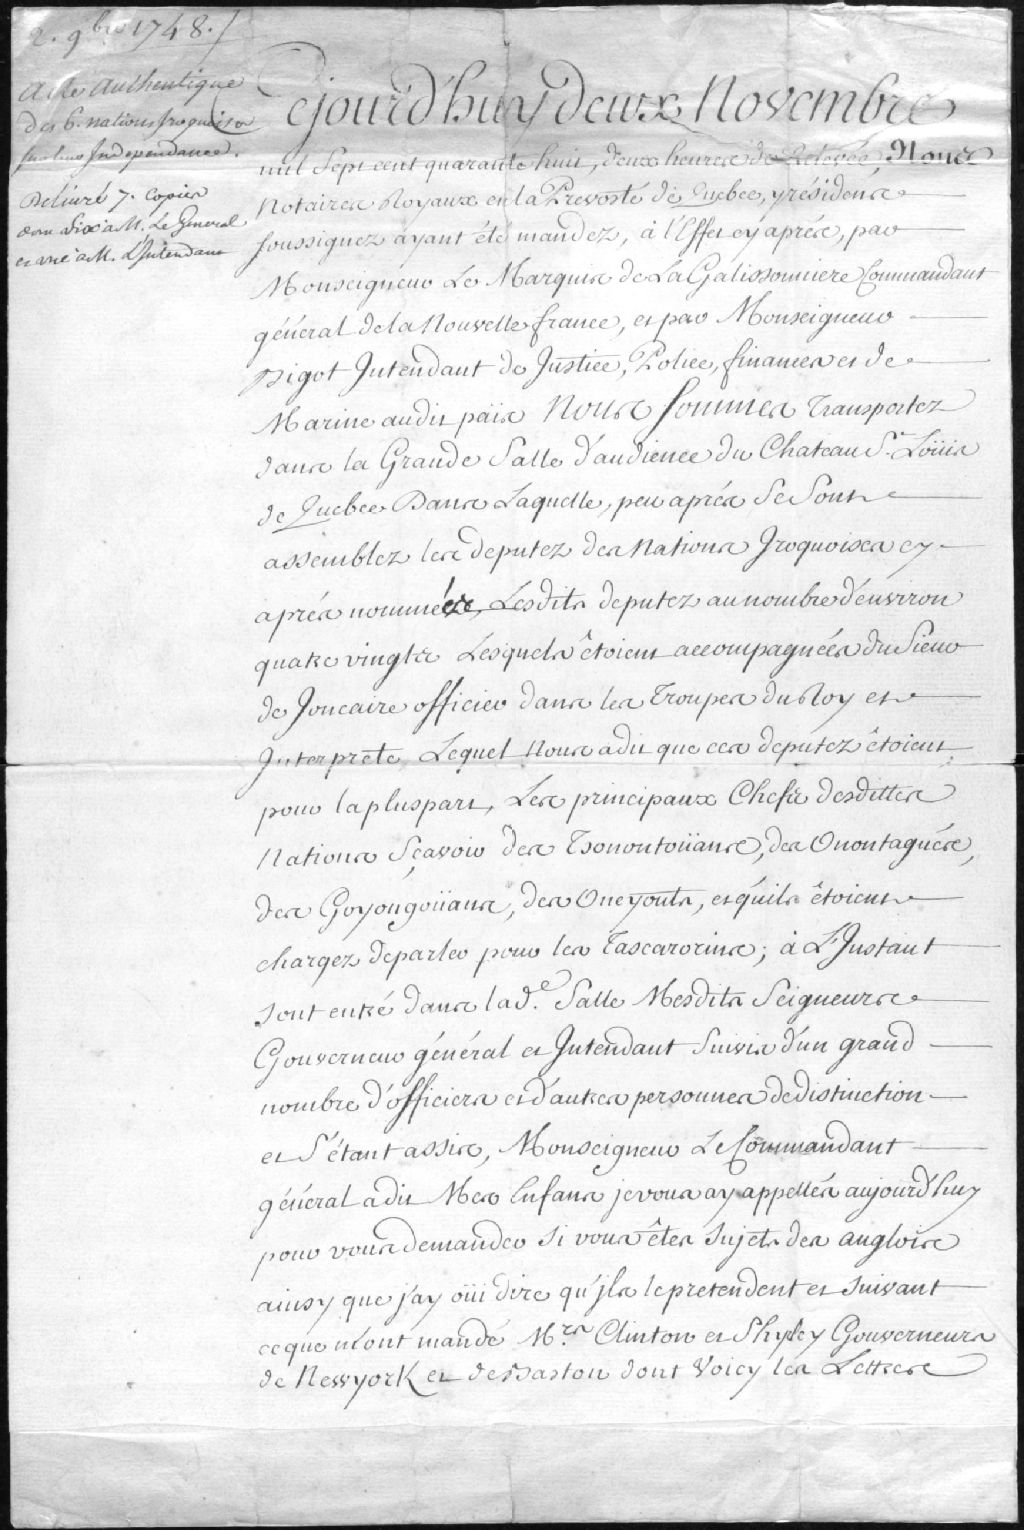 2. 9bre 1748./
Acte Authentique
des 6. nations Iroquoises
sur leur Independance.
Delivré 7. copies
dont six a M. Le General
et une a M. L'Intendant
Cejourd'huy deux Novembre
mil Sept cent quarante huit, deux heures de Relevée, Nous
Notaires Royaux en la Prevosté de Quebec, y résidens
soussignez ayant été mandez, à l'Effet cy aprés, par
Monseigneur Le Marquis de La Galissonniere Commandant
général de la Nouvelle france, et par Monseigneur
Bigot Intendant de Justice, Police, finances et de
Marine audit païs Nous sommes Transportez
dans la Grande Salle d'audience du Chateau St. Loüis
de Quebec Dans Laquelle, peu aprés Se Sont
assemblez les deputez des Nations Iroquoises cy
aprés nommées, Lesdits deputez au nombre d'environ
quatre vingts Lesquels êtoient accompagnées du Sieur
de Joncaire officier dans les Troupes du Roy et
Interprete Lequel Nous a dit que ces deputez êtoient
pour la pluspart, Les principaux Chefs desdittes
Nations Sçavoir des Tsonontoüans, des Onontagués,
des Goyongoüans, des Oneyouts, et qu'ils êtoient
chargez de parler pour les Tascarorins; à L'Instant
sont entré dans lad.e Salle Mesdits Seigneurs
Gouverneur général et Intendant Suivis d'un grand
nombre d'officiers et d'autres personnes de distinction
et S'étant assis, Monseigneur Le Commandant
général a dit Mes Enfans je vous ay appellés aujourd'huy
pour vous demander si vous êtes sujets des anglois
ainsy que j'ay oüi dire qu'ils le pretendent et suivant
ce que m'ont mandé Mrs. Clinton et Shyrley Gouverneurs
de New york et de Baston dont Voicy les Lettres